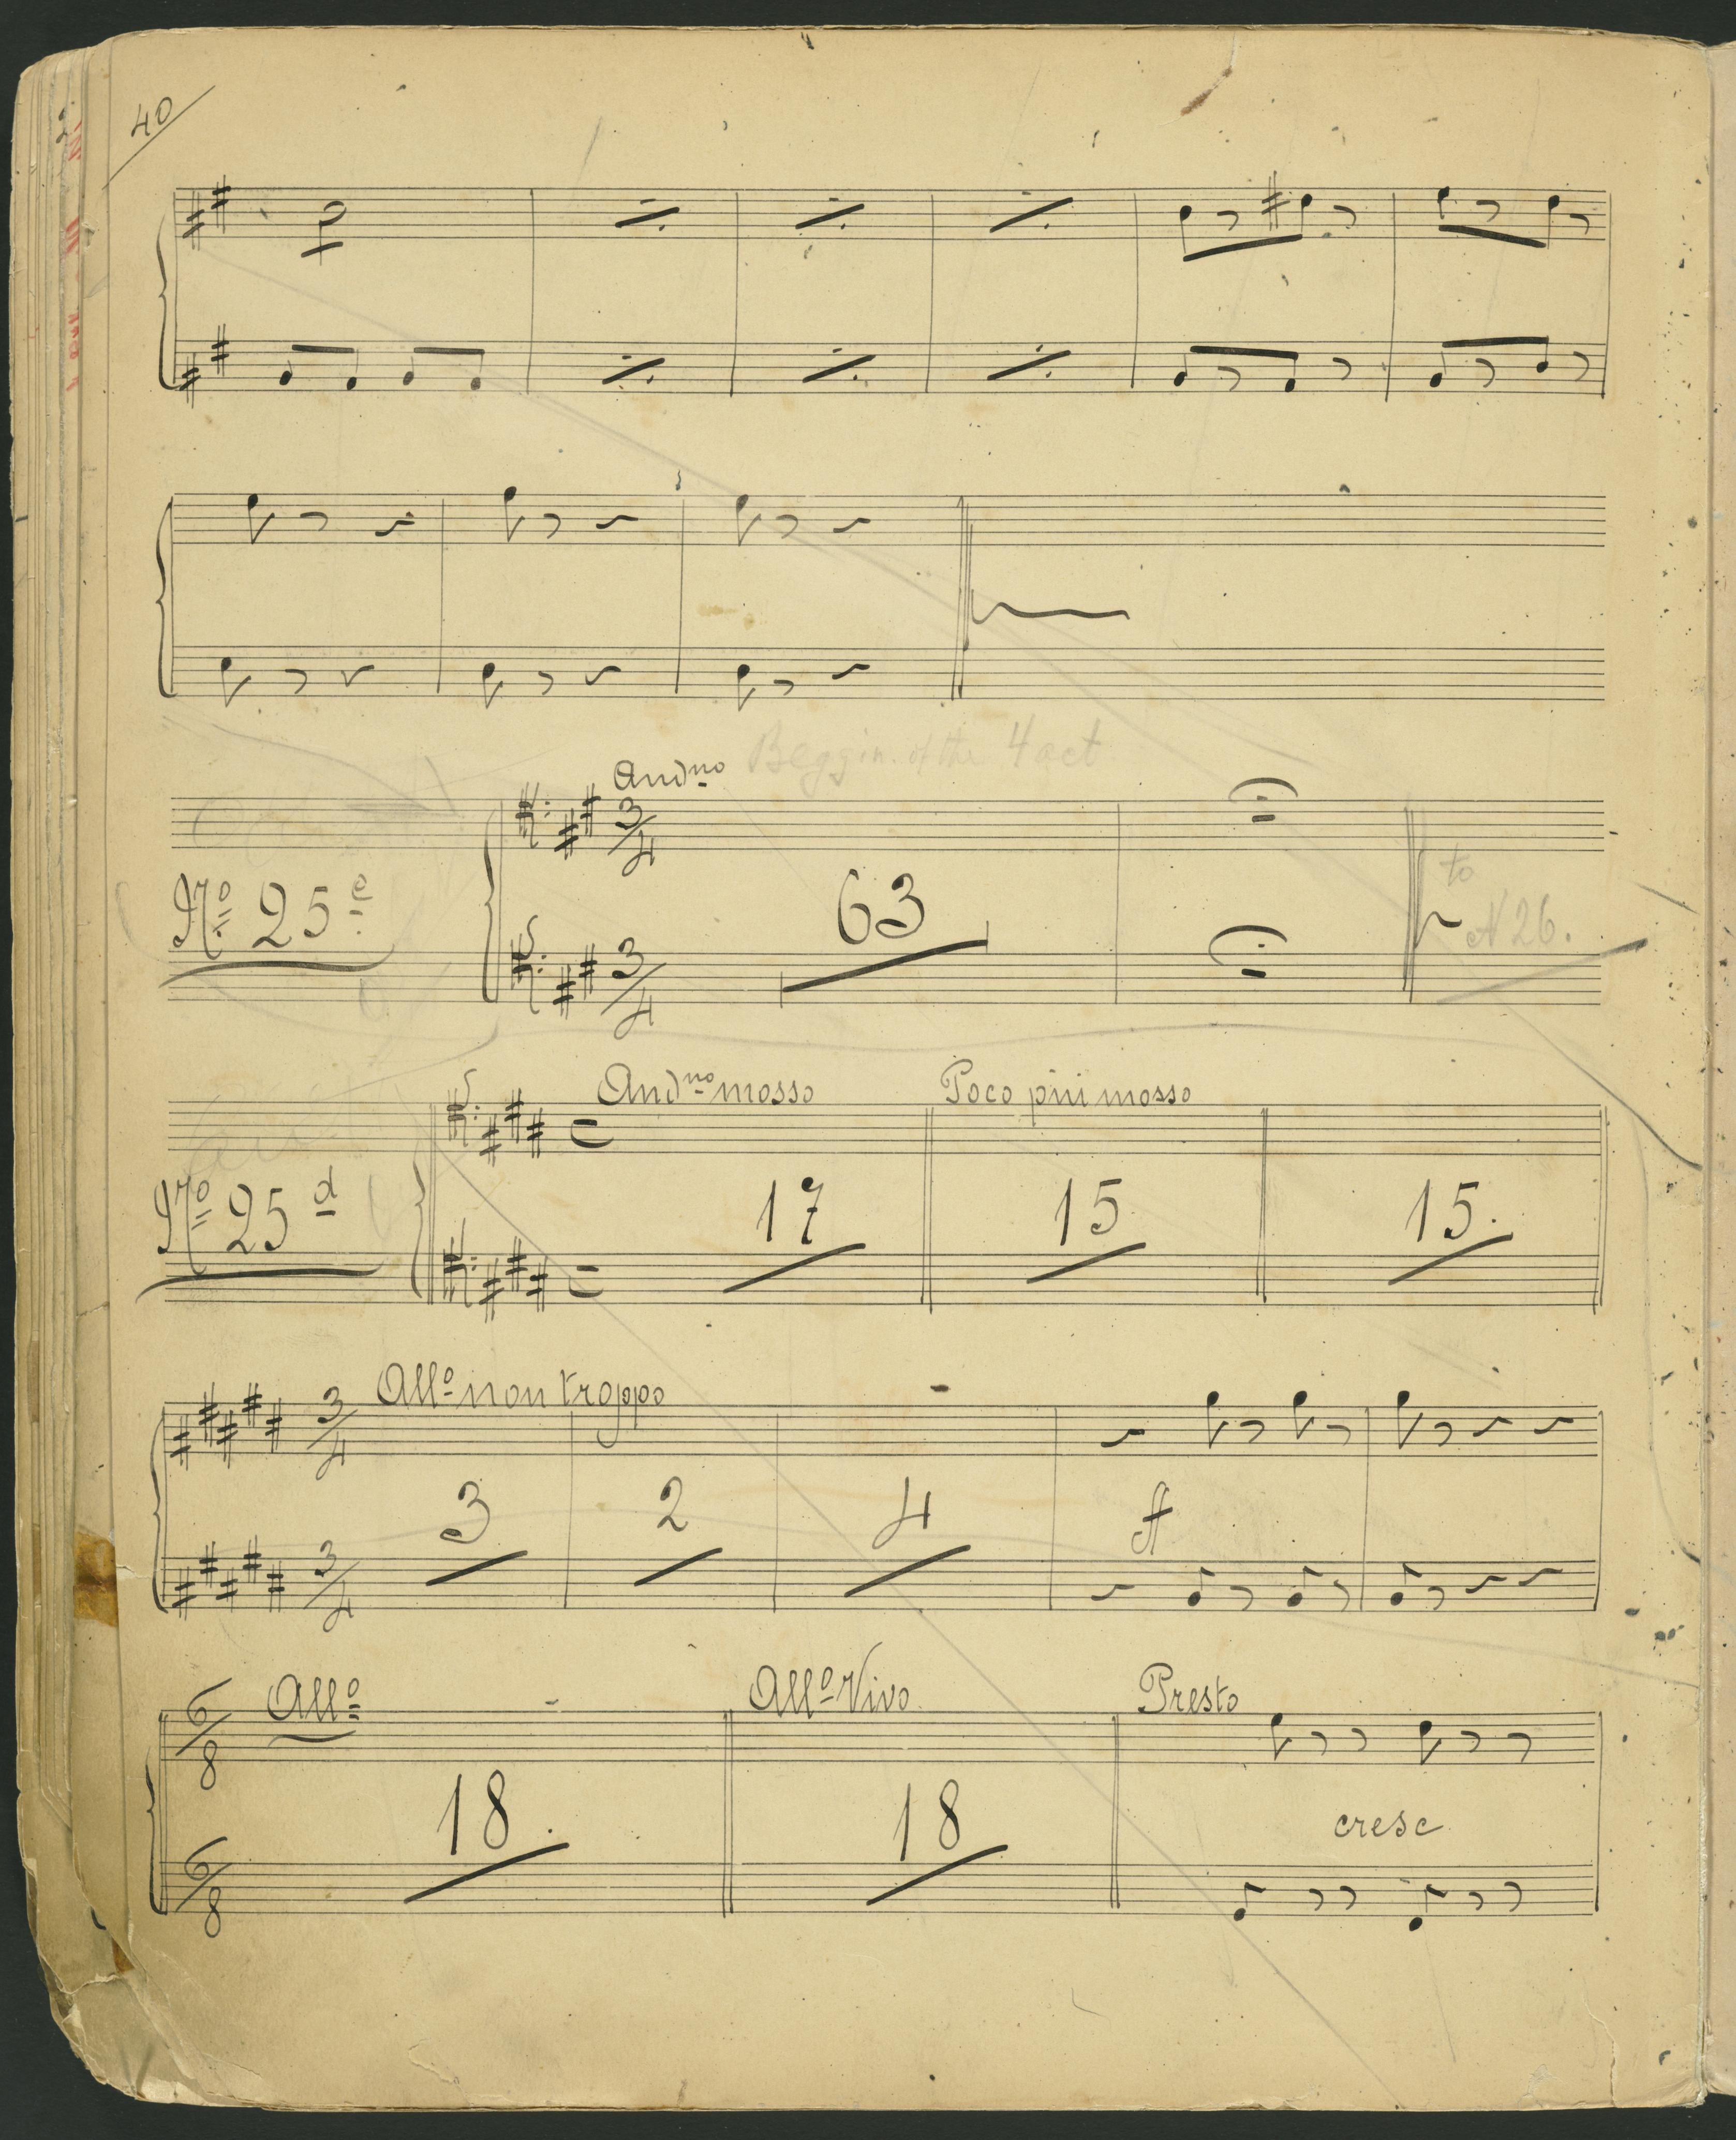 40
Beggin. of the 4 act
And.no
3/4
No 25e
63
to
N 26.
3/4
And.no mosso
Poco più mosso
No 25d
17
15
15.
All.o non troppo
3/4
3
2
4
ff
3/4
All.o
All.o Vivo
Presto
6/8
18.
18
cresc
6/8